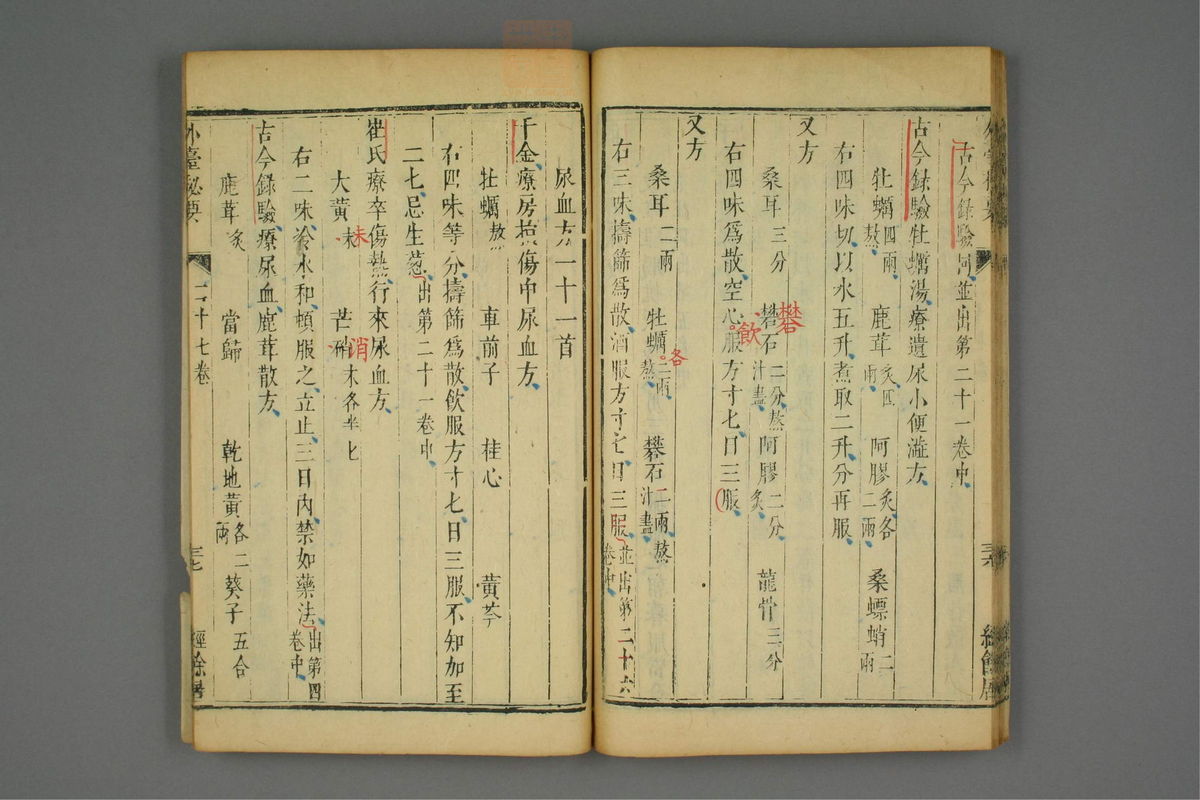 古今録驗同並出第二十一卷中
古今録驗牡蠣湯療遺尿小便澁方
牡蠣四兩熬 鹿茸炙四兩 阿膠炙各二兩 桑螵蛸二兩
右四味切以水五升煮取二升分再服
又方
桑耳三分 礬石二分熬汁盡 阿膠二分炙 龍骨三分
礬
右四味為散空心服方寸匕日三服
飲
又方
桑耳二兩 牡蠣三兩熬 礬石二兩熬汁盡
各
右三味擣篩為散酒服方寸匕日三服並出第二十六卷中
三六
尿血方一十一首
千金療房損傷中尿血方
牡蠣熬 車前子 桂心 黃芩
右四味等分擣篩為散飲服方寸匕日三服不知加至
二七忌生葱出第二十一卷中
崔氏療卒傷熱行來尿血方
大黃末 芒硝末各半匕
末
消
右二味冷水和頓服之立止三日內禁如藥法出第四卷中
古今録驗療尿血鹿茸散方
鹿茸炙 當歸 乾地黃各二兩 葵子五合
外臺秘要 二十七卷 三七 經餘居